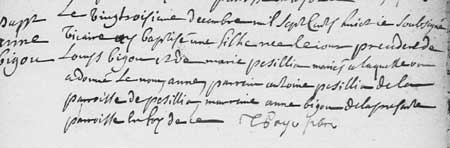 bapt Le vingtroisiesme decembre mil sept cents huict ie soubsigne
anne vicaire ay baptise une filhe nee le jour precedent de
bigou Louys bigou et de marie pesillia maries a laquelle on
a donné le nom anne parrein antoine pesillia de la
parroisse de pesillia marreine anne bigou de la presante
parroisse en foy de ce